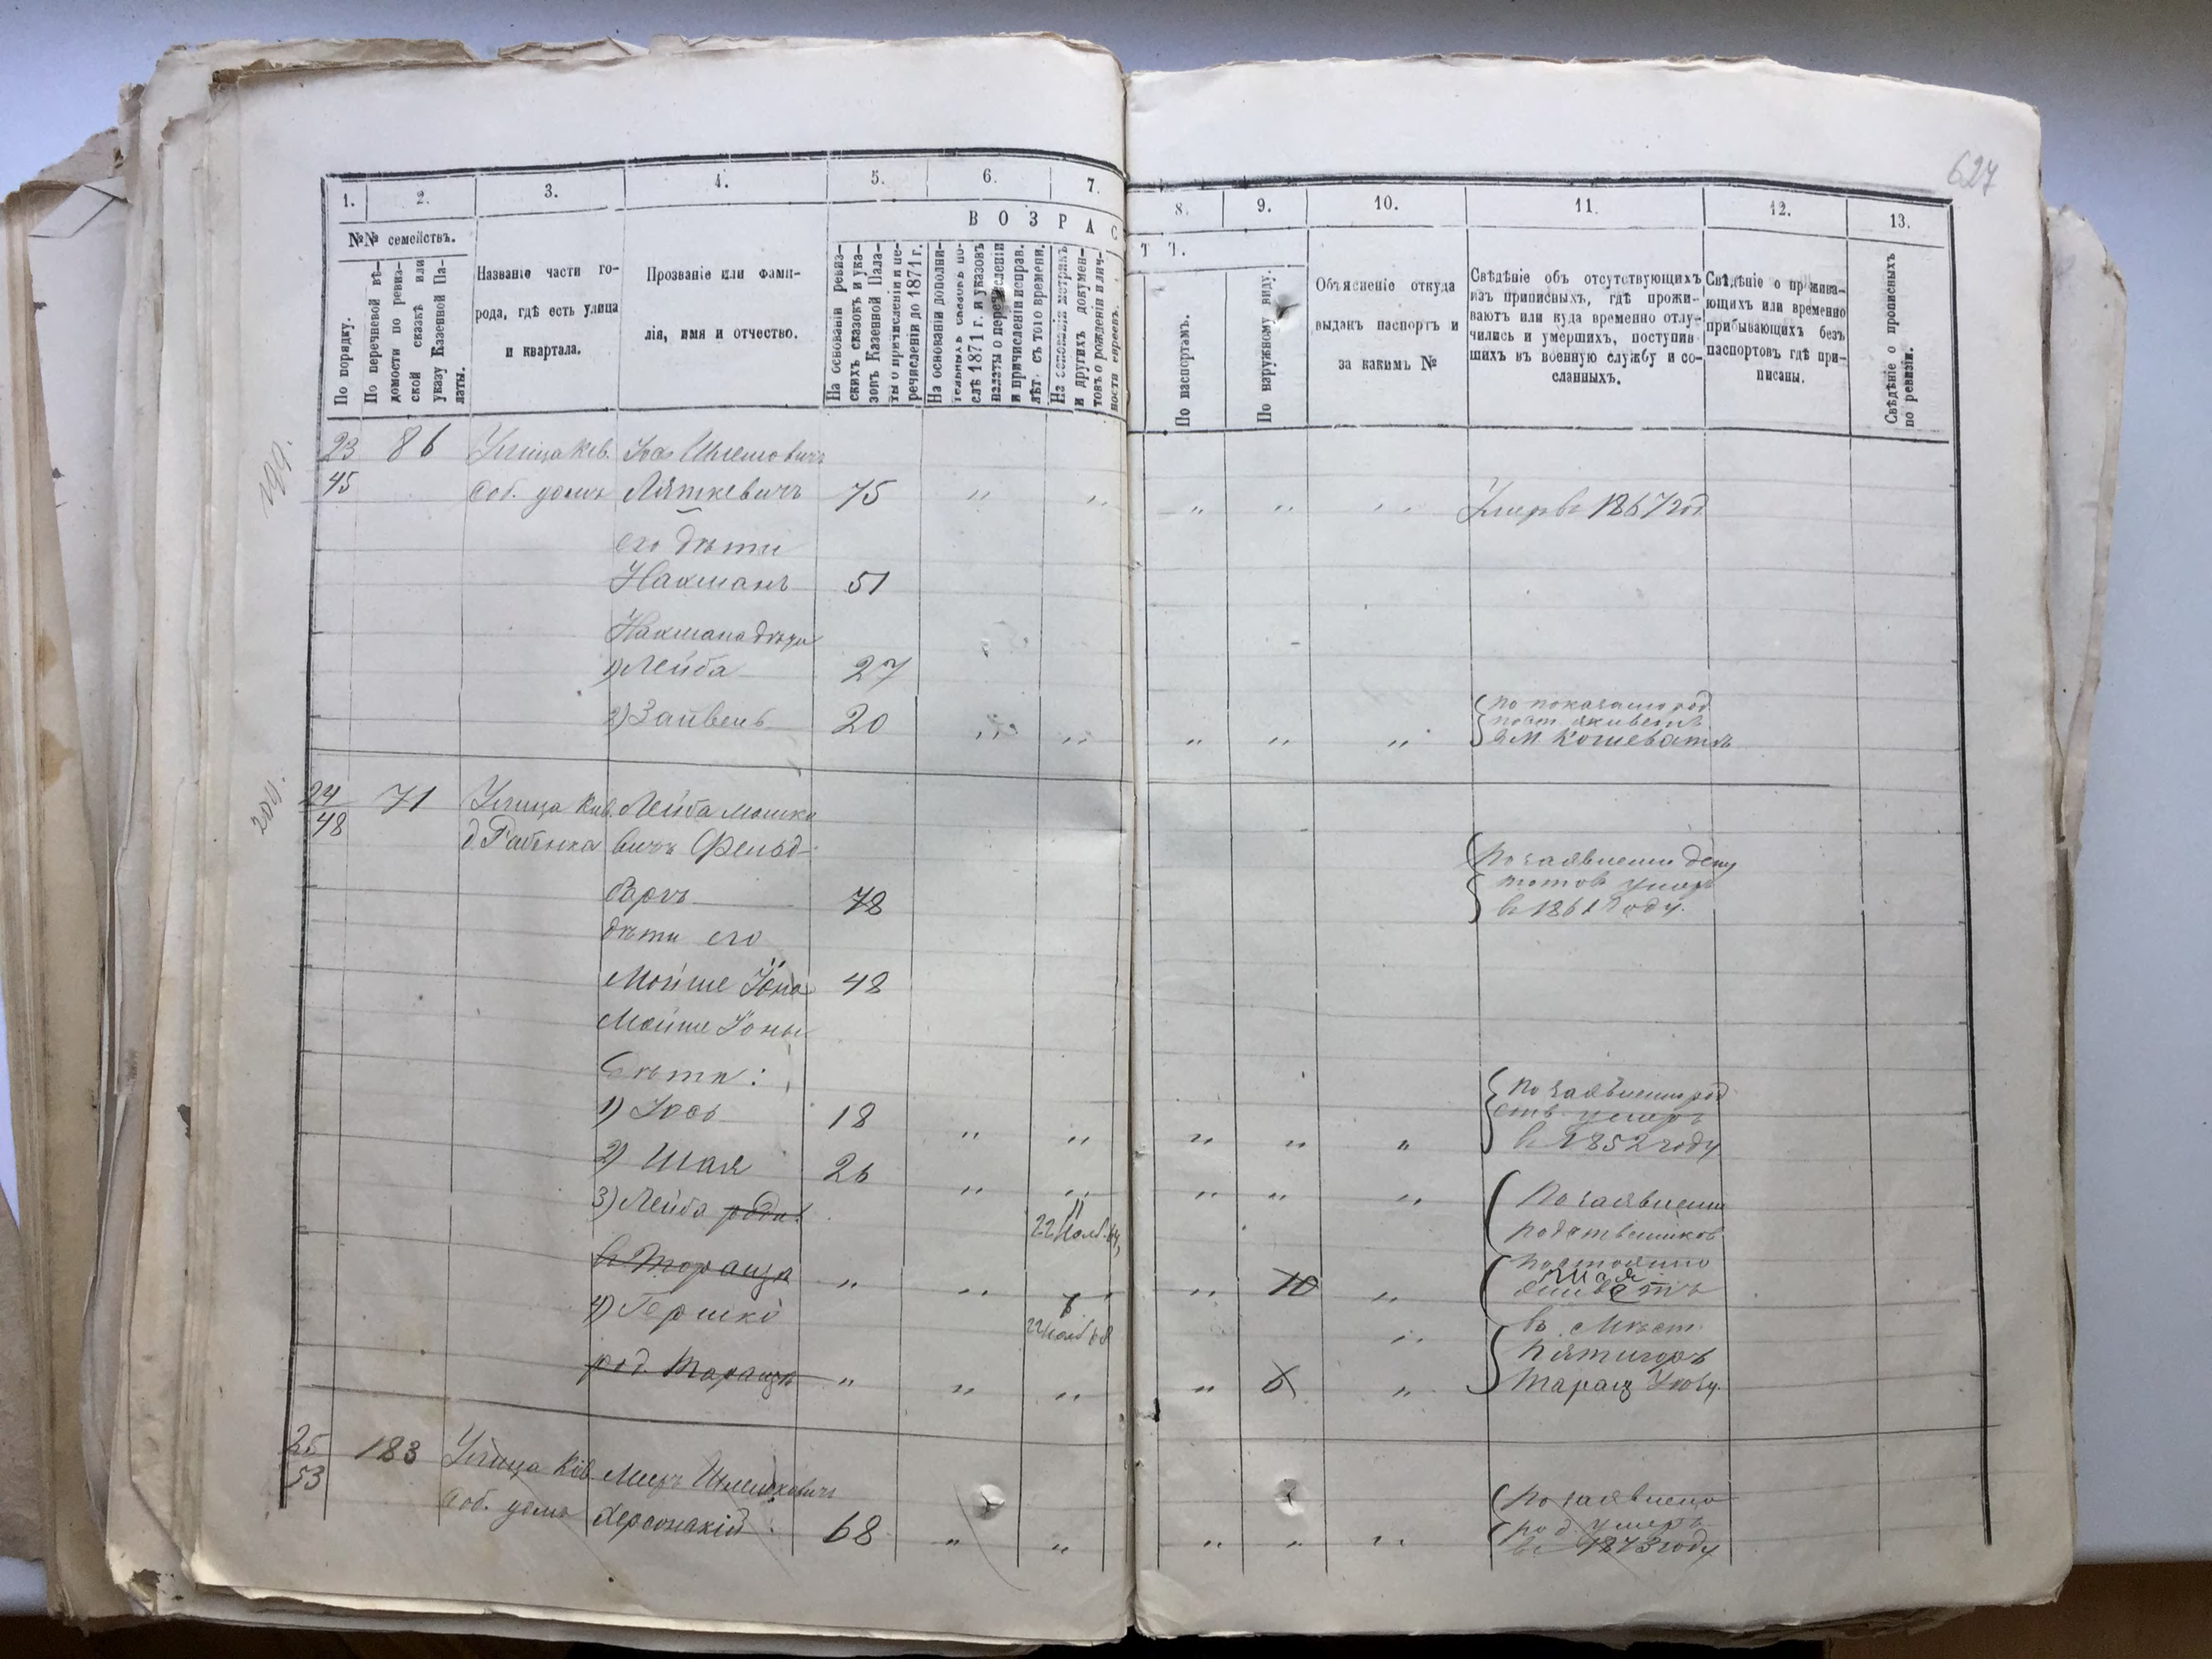 627
1.
2.
3.
4.
5.
6.
7.
8.
9.
10.
11.
12.
13.
№№ семействъ.
По порядку.
По перечневой вѣ-
домости по ревиз-
ской сказкѣ или
указу Казенной Па-
латы.
Названіе части го-
рода, гдѣ есть улица
и квартала.
Прозваніе или фами-
лія, имя и отчество.
В О З Р А С
Т Ъ.
На основаніи ревиз-
скихъ сказокъ и ука-
зовъ Казенной Пала-
ты о причисленіи и пе-
речисленіи до 1871 г.
На основаніи дополни-
тельныхъ сказокъ по-
слѣ 1871 г. и указовъ
палаты о перечисленіи
и причисленіи исправ.
лѣт. съ того времени.
На основаніи метрикъ
и другихъ докумен-
товъ о рожденіи и лич-
ности евреевъ.
По паспортамъ.
По наружному виду.
Объясненіе откуда
выданъ паспортъ и
за какимъ №
Свѣдѣніе объ отсутствующихъ
изъ приписныхъ, гдѣ прожи-
ваютъ или куда временно отлу-
чились и умершихъ, поступив-
шихъ въ военную службу и со-
сланныхъ.
Свѣдѣніе о прожива-
ющихъ или временно
прибывающихъ безъ
паспортовъ гдѣ при-
писаны.
Свѣдѣніе о прописныхъ
по ревизіи.
199.
23 86 Улица Кіев. Іось Шлемовичъ
45 Соб. домъ Ляткевичъ 75 " " " " " Умеръ въ 1867 год
его дѣти
Нахманъ 51
Нахмана дѣти
1) Лейба 27
2) Зайвель 20 " " " " "
по показанію род
пост. живетъ
в м Кошеватѣ
200.
24 71 Улица Кіев. Лейба Мошко
48 д. Рабенка вичъ Фельд-
баръ 78
По заявленію депу
татовъ умеръ
въ 1861 году.
дѣти его
Мойше Іона 48
Мойше Іоны
дѣти:
1) Іось 18 " " " " "
По заявленію род
ств. умеръ
въ 1852 году
2) Шая 26 " " " " "
3) Лейба родил.
22 Нояб. 64
въ Тараща " " " 10 "
4) Гершко
22 нояб 68
род. Тараща " " " " 6 "
По заявленію
родственниковъ
постоянно
Шая
живетъ
въ Мѣст.
Пятигоръ
Таращ Уѣзду.
25 183 Улица Кіев. Меер Шлемовичъ
53 Соб. домъ Херсонскій 68 " " " " "
По заявленію
род. умеръ
въ 1873 году